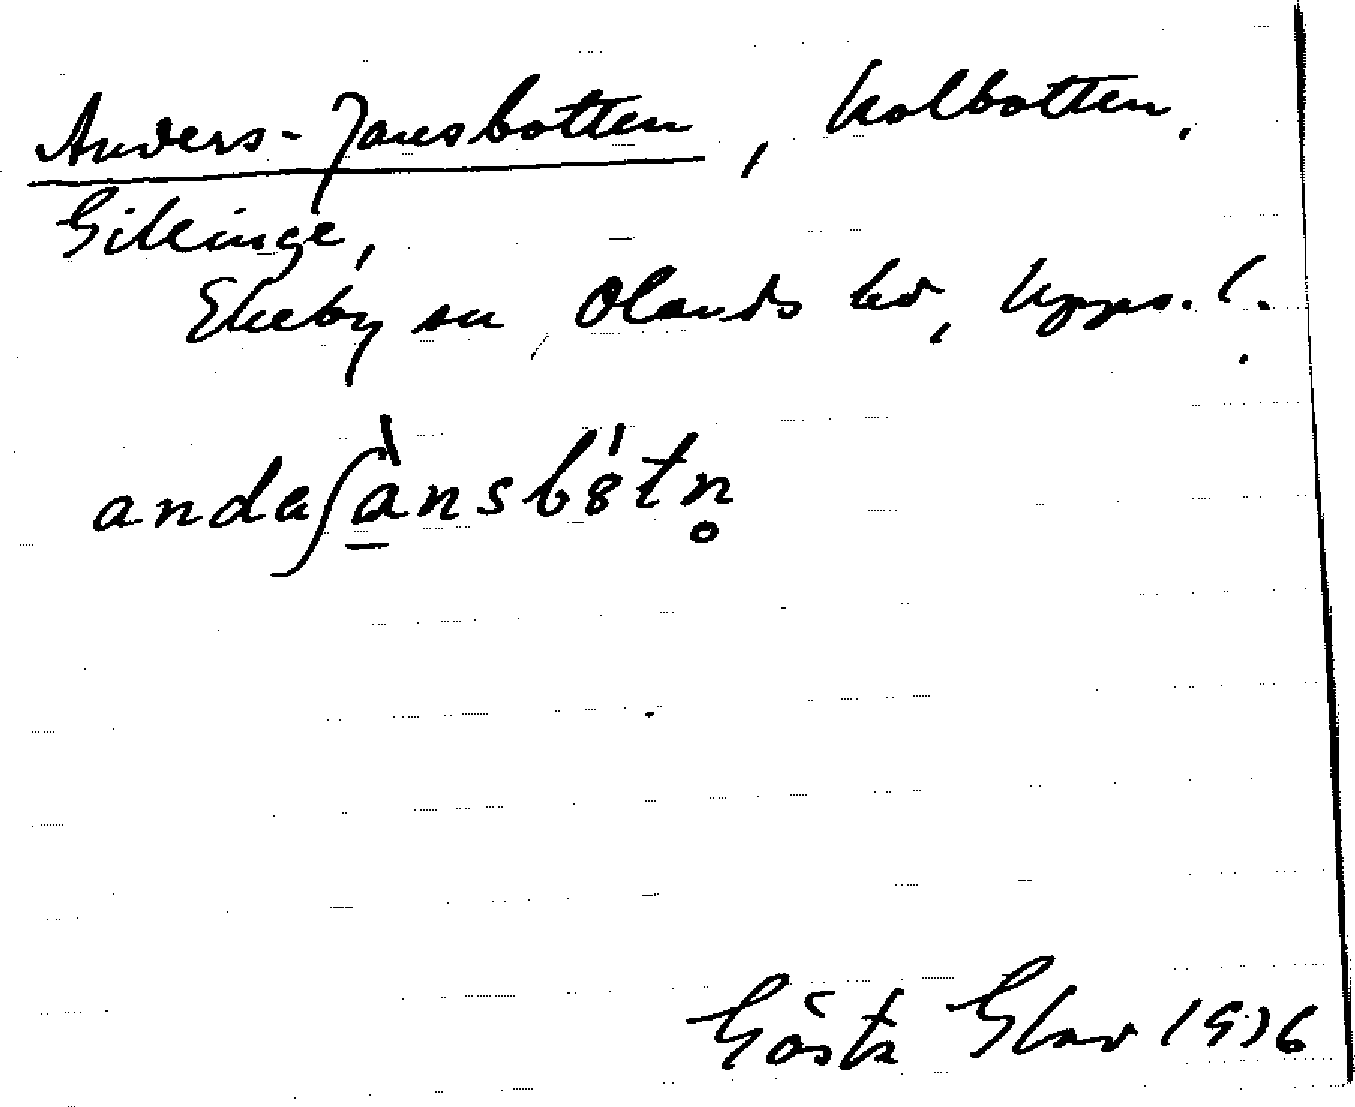 Anders-Jansbotten, kolbotten,
Gillinge,
Ekeby sn, Olands hd, Upps. l.
andaʃànsbȯtn̥
Gösta